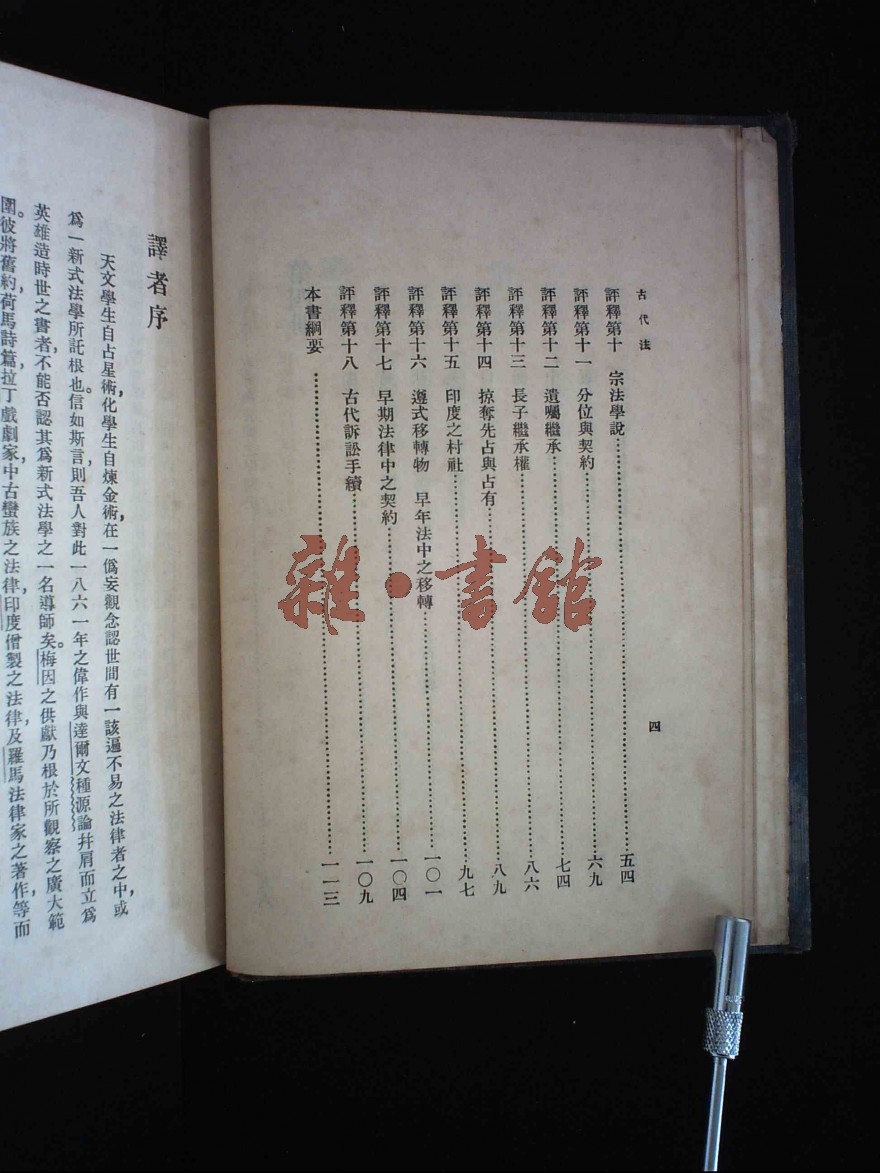 古代法
四
評釋第十 宗法學說……五四
評釋第十一 分位與契約……六九
評釋第十二 遺囑繼承……七四
評釋第十三 長子繼承權……八六
評釋第十四 掠奪先占與占有……八九
評釋第十五 印度之村社……九七
評釋第十六 遵式移轉物 早年法中之移轉……一〇一
評釋第十七 早期法律中之契約……一〇四
評釋第十八 古代訴訟手續……一〇九
本書綱要……一一三
譯者序
天文學生自占星術,化學生自煉金術,在一僞妄觀念認世間有一該遍不易之法律者之中,或
爲一新式法學所託根也。信如斯言,則吾人對此一八六一年之偉作與達爾文種源論幷肩而立爲
英雄造時世之書者,不能否認其爲新式法學之一名導師矣。梅因之供獻乃根於所觀察之廣大範
圍。彼將舊約荷馬詩篇拉丁戲劇家,中古蠻族之法律,印度僧製之法律,及羅馬法律家之著作,等而
雜·書館